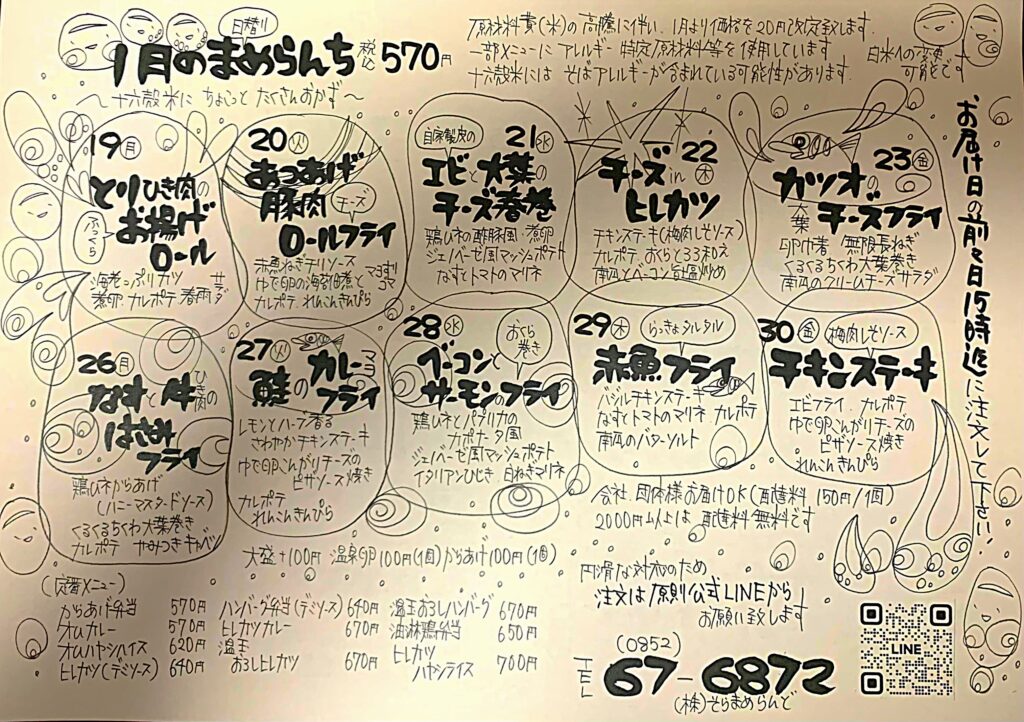 日替り
1月のまめらんち 税込570円
～十六穀米に ちょこっと たくさんおかず～
原材料費(米)の高騰に伴い、1月より価格を20円改定致します
一部メニューにアレルギー特定原材料等を使用しています
十六穀米には そばアレルギーが含まれている可能性があります。
白米への変更
可能です
19(月)
とりひき肉の
ふっくら
お揚げ
ロール
海老っぷりカツ
煮卵 カルポテ 春雨サラダ
20(火)
あつあげ
豚肉 チーズ
ロールフライ
赤魚ねぎチリソース
カルポテ れんこんきんぴら
自家製皮の
21(水)
エビと大葉の
チーズ春巻
鶏ひねの酢豚風・煮卵
ジェノベーゼ風マッシュポテト
なすとトマトのマリネ
22(木)
チーズin
ヒレカツ
チキンステーキ(梅肉しそソース)
カルポテ、おくらと33和え
南瓜とベーコン甘塩炒め
23(金)
カツオの
大葉チーズフライ
卵巾着 無限長ねぎ
くるくるちくわ大葉巻き
南瓜のクリームチーズサラダ
26(月)
なすと牛ひき肉の
はさみ
フライ
鶏ひねからあげ
(ハニーマスタードソース)
くるくるちくわ大葉巻き
カルポテ やみつきキャベツ
27(火)
鮭のカレーマヨ
フライ
レモンとハーブ香る
さわやかチキンステーキ
ゆで卵こんがりチーズの
ピザソース焼き
カルポテ
れんこんきんぴら
28(水)
おくら巻き
ベーコンと
サーモンのフライ
鶏ひねとパプリカの
カポナータ風
ジェノベーゼ風マッシュポテト
イタリアンひじき 白ねぎマリネ
29(木)
らっきょタルタル
赤魚フライ
バジルチキンステーキ
なすとトマトのマリネ カルポテ
南瓜のバターソルト
30(金)
梅肉しそソース
チキンステーキ
エビフライ カルポテ
ゆで卵こんがりチーズの
ピザソース焼き
れんこんきんぴら
お届け日の前々日15時迄に注文して下さい!
会社、団体様お届けOK(配達料150円/1個)
2000円以上は配達料無料です
大盛+100円 温泉卵100円(1個)からあげ100円(1個)
円滑な対応のため
注文は原則公式LINEから
お願い致します
(定番メニュー)
からあげ弁当 570円
オムカレー 570円
オムハヤシライス 620円
ヒレカツ(デミソース) 640円
ハンバーグ弁当(デミソース) 640円
ヒレカツカレー 670円
温玉
おろしヒレカツ 670円
温玉おろしハンバーグ 670円
油淋鶏弁当 650円
ヒレカツ
ハヤシライス 700円
(0852)
TEL 67-6872
(株)そらまめらんど
LINE